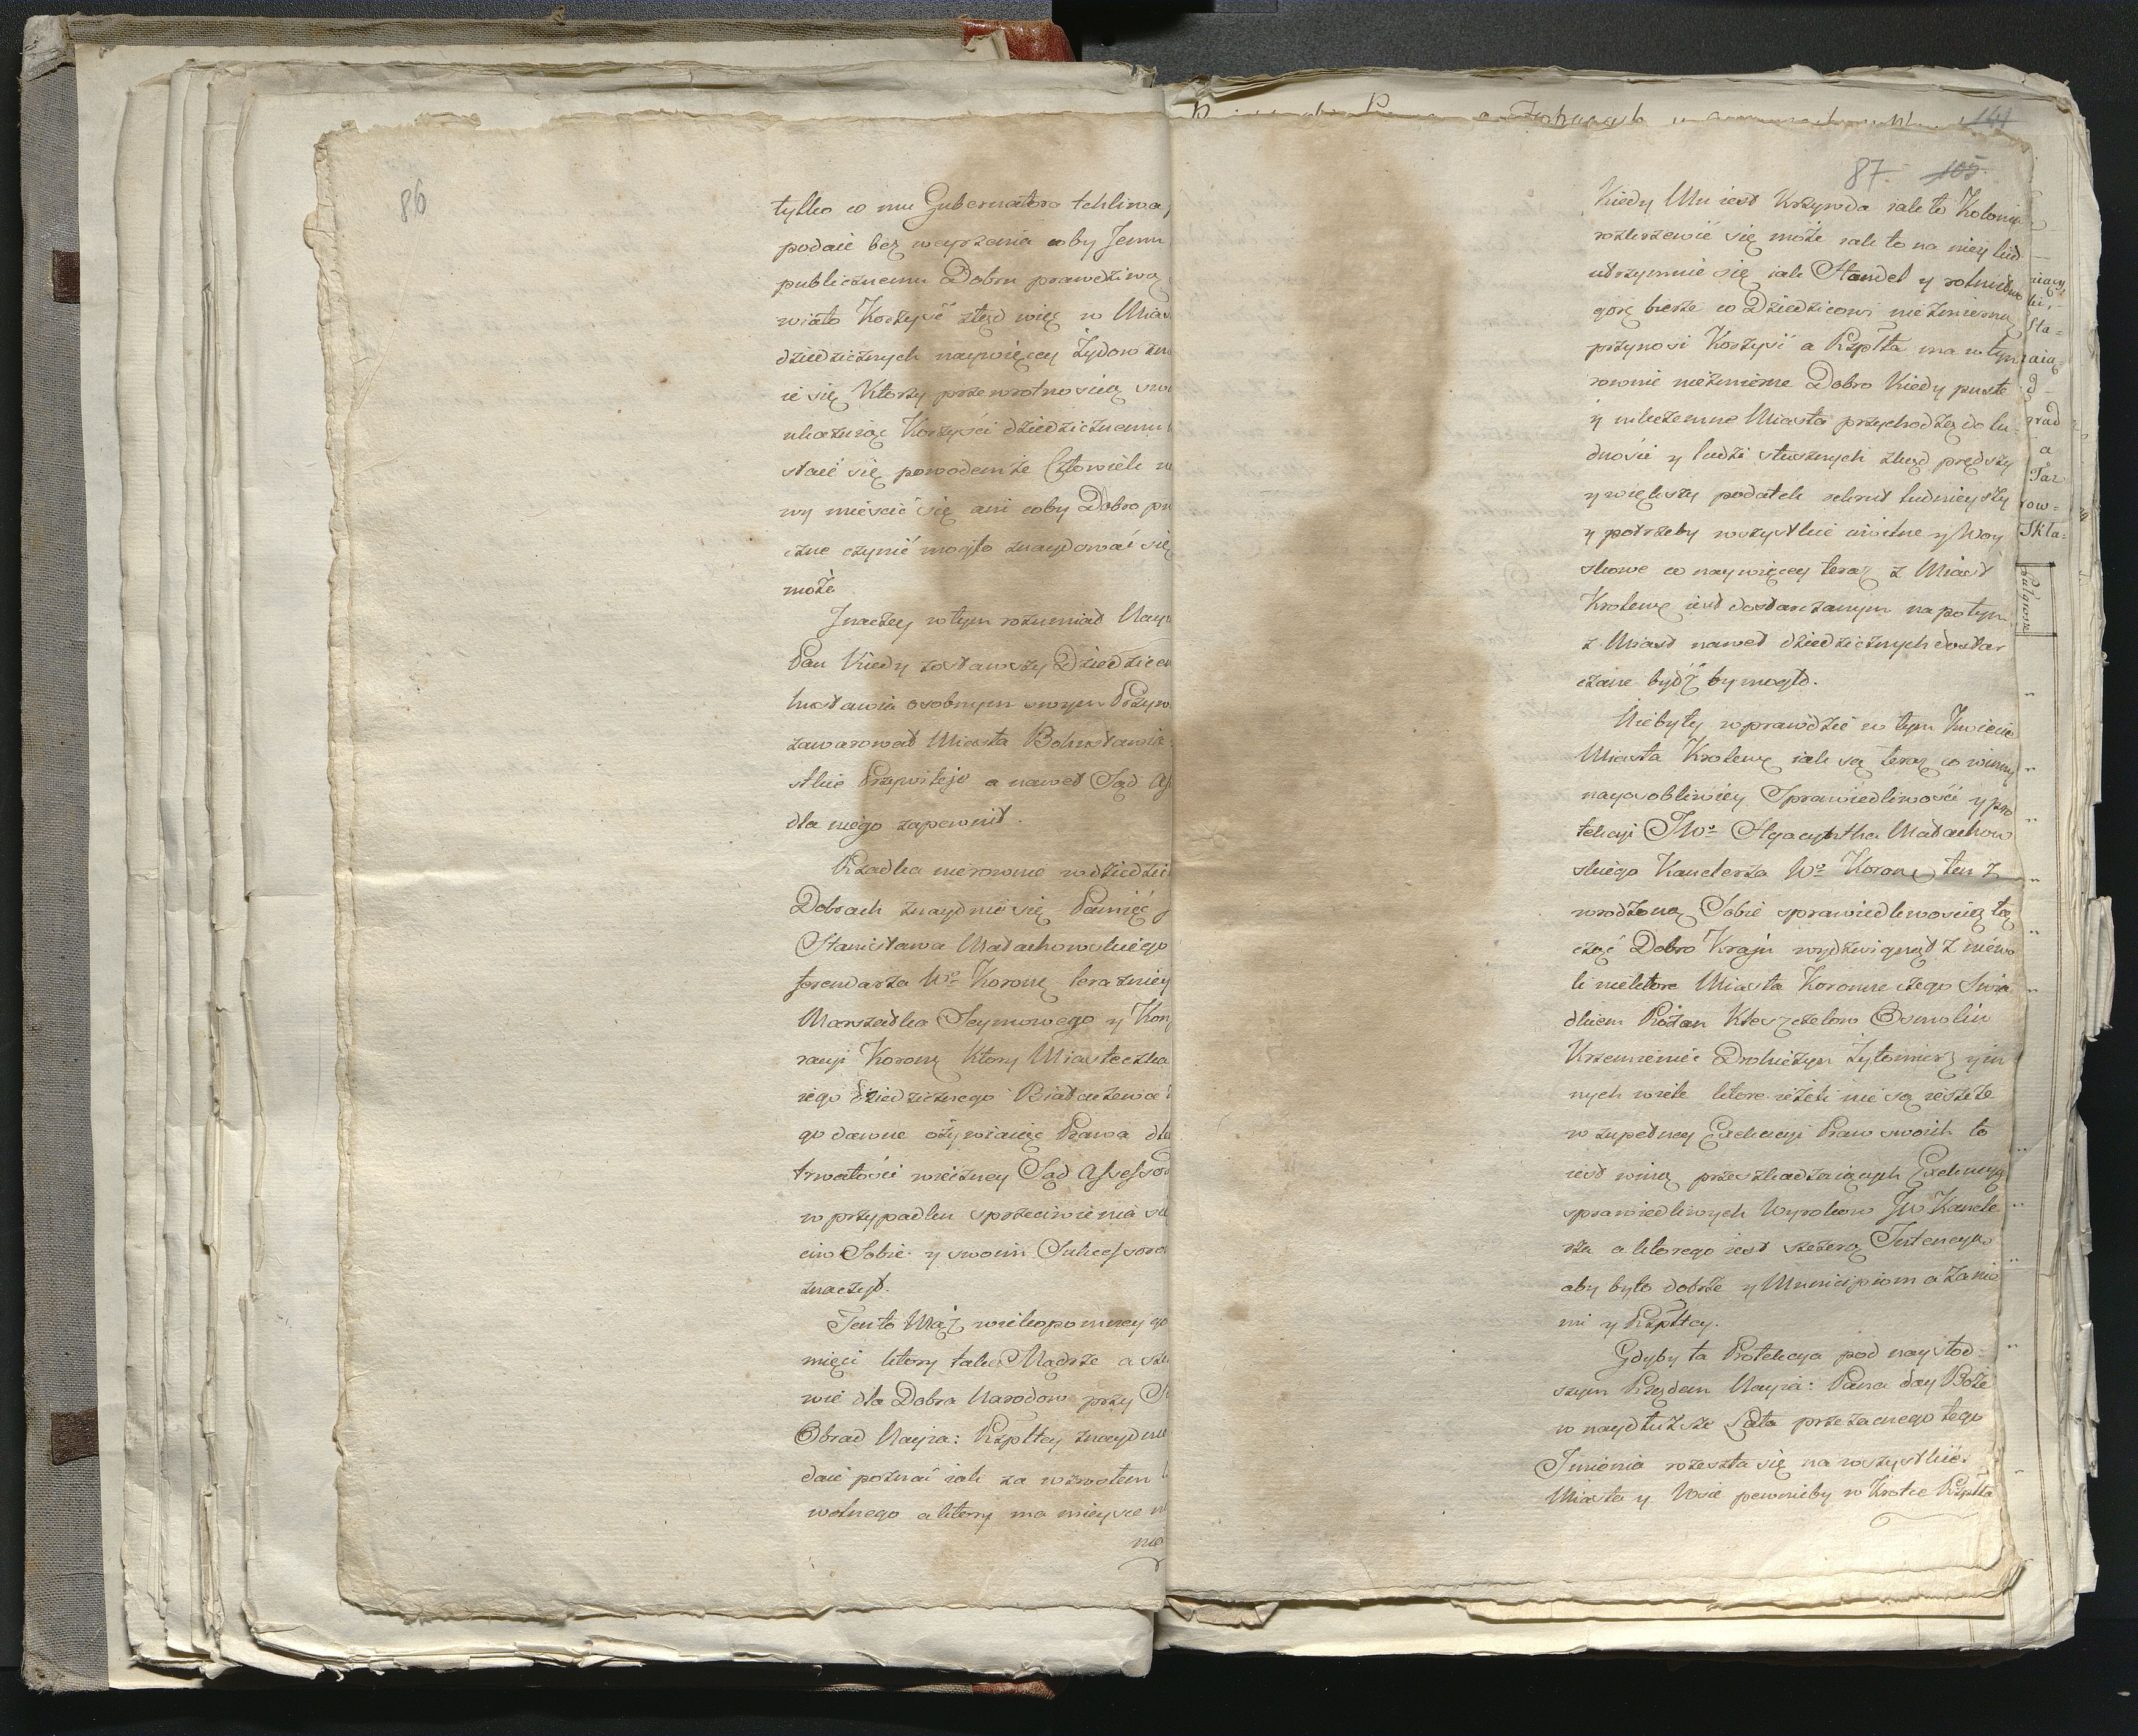 86
tylko co mu Gubernatora tchliwa
podaie bez weyrzenia coby Jemu
publicznemu Dobru prawdziwą
wiało Korzyść ztąd więc w Mias
dziedzicznych naywięcey Żydow zna
ie się Ktorzy przewrotnością swo
ukazuiąc Korzyści dziedzicznemu
staić się powodem że Człowiek
wy mieścić się ani coby Dobro pu
czne czynić mogło znaydować się
może
Jnaczey w tym rozumiał Nayia
Pan Kiedy zostawszy Dziedzicem
husławia osobnym swym Przyw
zawarował Miasta Bohusławia
stkie Przywileje a nawet Sąd Ass
dla niego zapewnił.
Rzadka nierownie w dziedzi
Dobrach znayduie się Pamięć
Stanisława Małachowskiego
ferendarza Wo Koronę terazniey
Marszałka Seymowego y Konf
racyi Korony Ktory Miasteczka
iego Dziedzicznego Białaczewa
go dawne ożywiaiąc Prawa dla
trwałości wieczney Sąd Assessor
w przypadku sprzeciwienia się
ciw Sobie y swoim Sukcessoro
znaczył.
Ten to Mąż wiekopomney go
mięci ktory tak Mądrze a szc
wie dla Dobra Narodow przy S
Obrad Nayia: Rzpltey znayduie
daie poznać iak za wzrostem
wolnego a ktory ma mieysce
nie
141
87. 105.
Kiedy Mu iest Krzywda iak to Kolonia
rozkrzewić się może iak to na niey lud
utrzymuie się iak Handel y rolnictwo
gorę bierze co Dziedzicowi niezmierną
przynosi Korzyść a Rzplta ma w tym
rownie niezmierne Dobro Kiedy puste
y nikczemne Miasta przychodzą do lu-
dności y ludzi słusznych zkąd prędszy
y większy podatek rekrut ludnieyszy
y potrzeby wszystkie cywilne y Woy
skowe co naywięcey teraz z Miast
Krolewę iest dostarczanym na potym
z Miast nawet dziedzicznych dostar
czane bydź by mogło.
Niebyły wprawdzie w tym Kwiecie
Miasta Krolewę iak są teraz co winny
nayosobliwiey Sprawiedliwości y pro
tekcyi JWo Hyacyntha Małachow
skiego Kanclerza Wo Koron ten z
wrodzoną Sobie sprawiedliwością łą
cząc Dobro Kraju wydzwignął z niewo
li niektore Miasta Koronne czego Świa
dkiem Rożan Kleszczelow Osmolin
Krzemieniec Drohiczyn Żytomierz y in
nych wiele ktore ieżeli nie są ieszcze
w zupełney Exekucyi Praw swoich to
iest winą przeszkadzaiących Exekucyą
sprawiedliwych Wyrokow JW Kancle
rza a ktorego iest szczerą Jntencyą
aby było dobrze y Municipiom a za nie
mi y Rzpltey.
Gdyby ta Protekcya pod naysłod-
szym Rządem Nayia: Pana day Boże
w naydłuzsze Lata przezacnego tego
Jmienia rozeszła się na wszystkie
Miasta y Wsie pewnieby w Krotce Rzplta